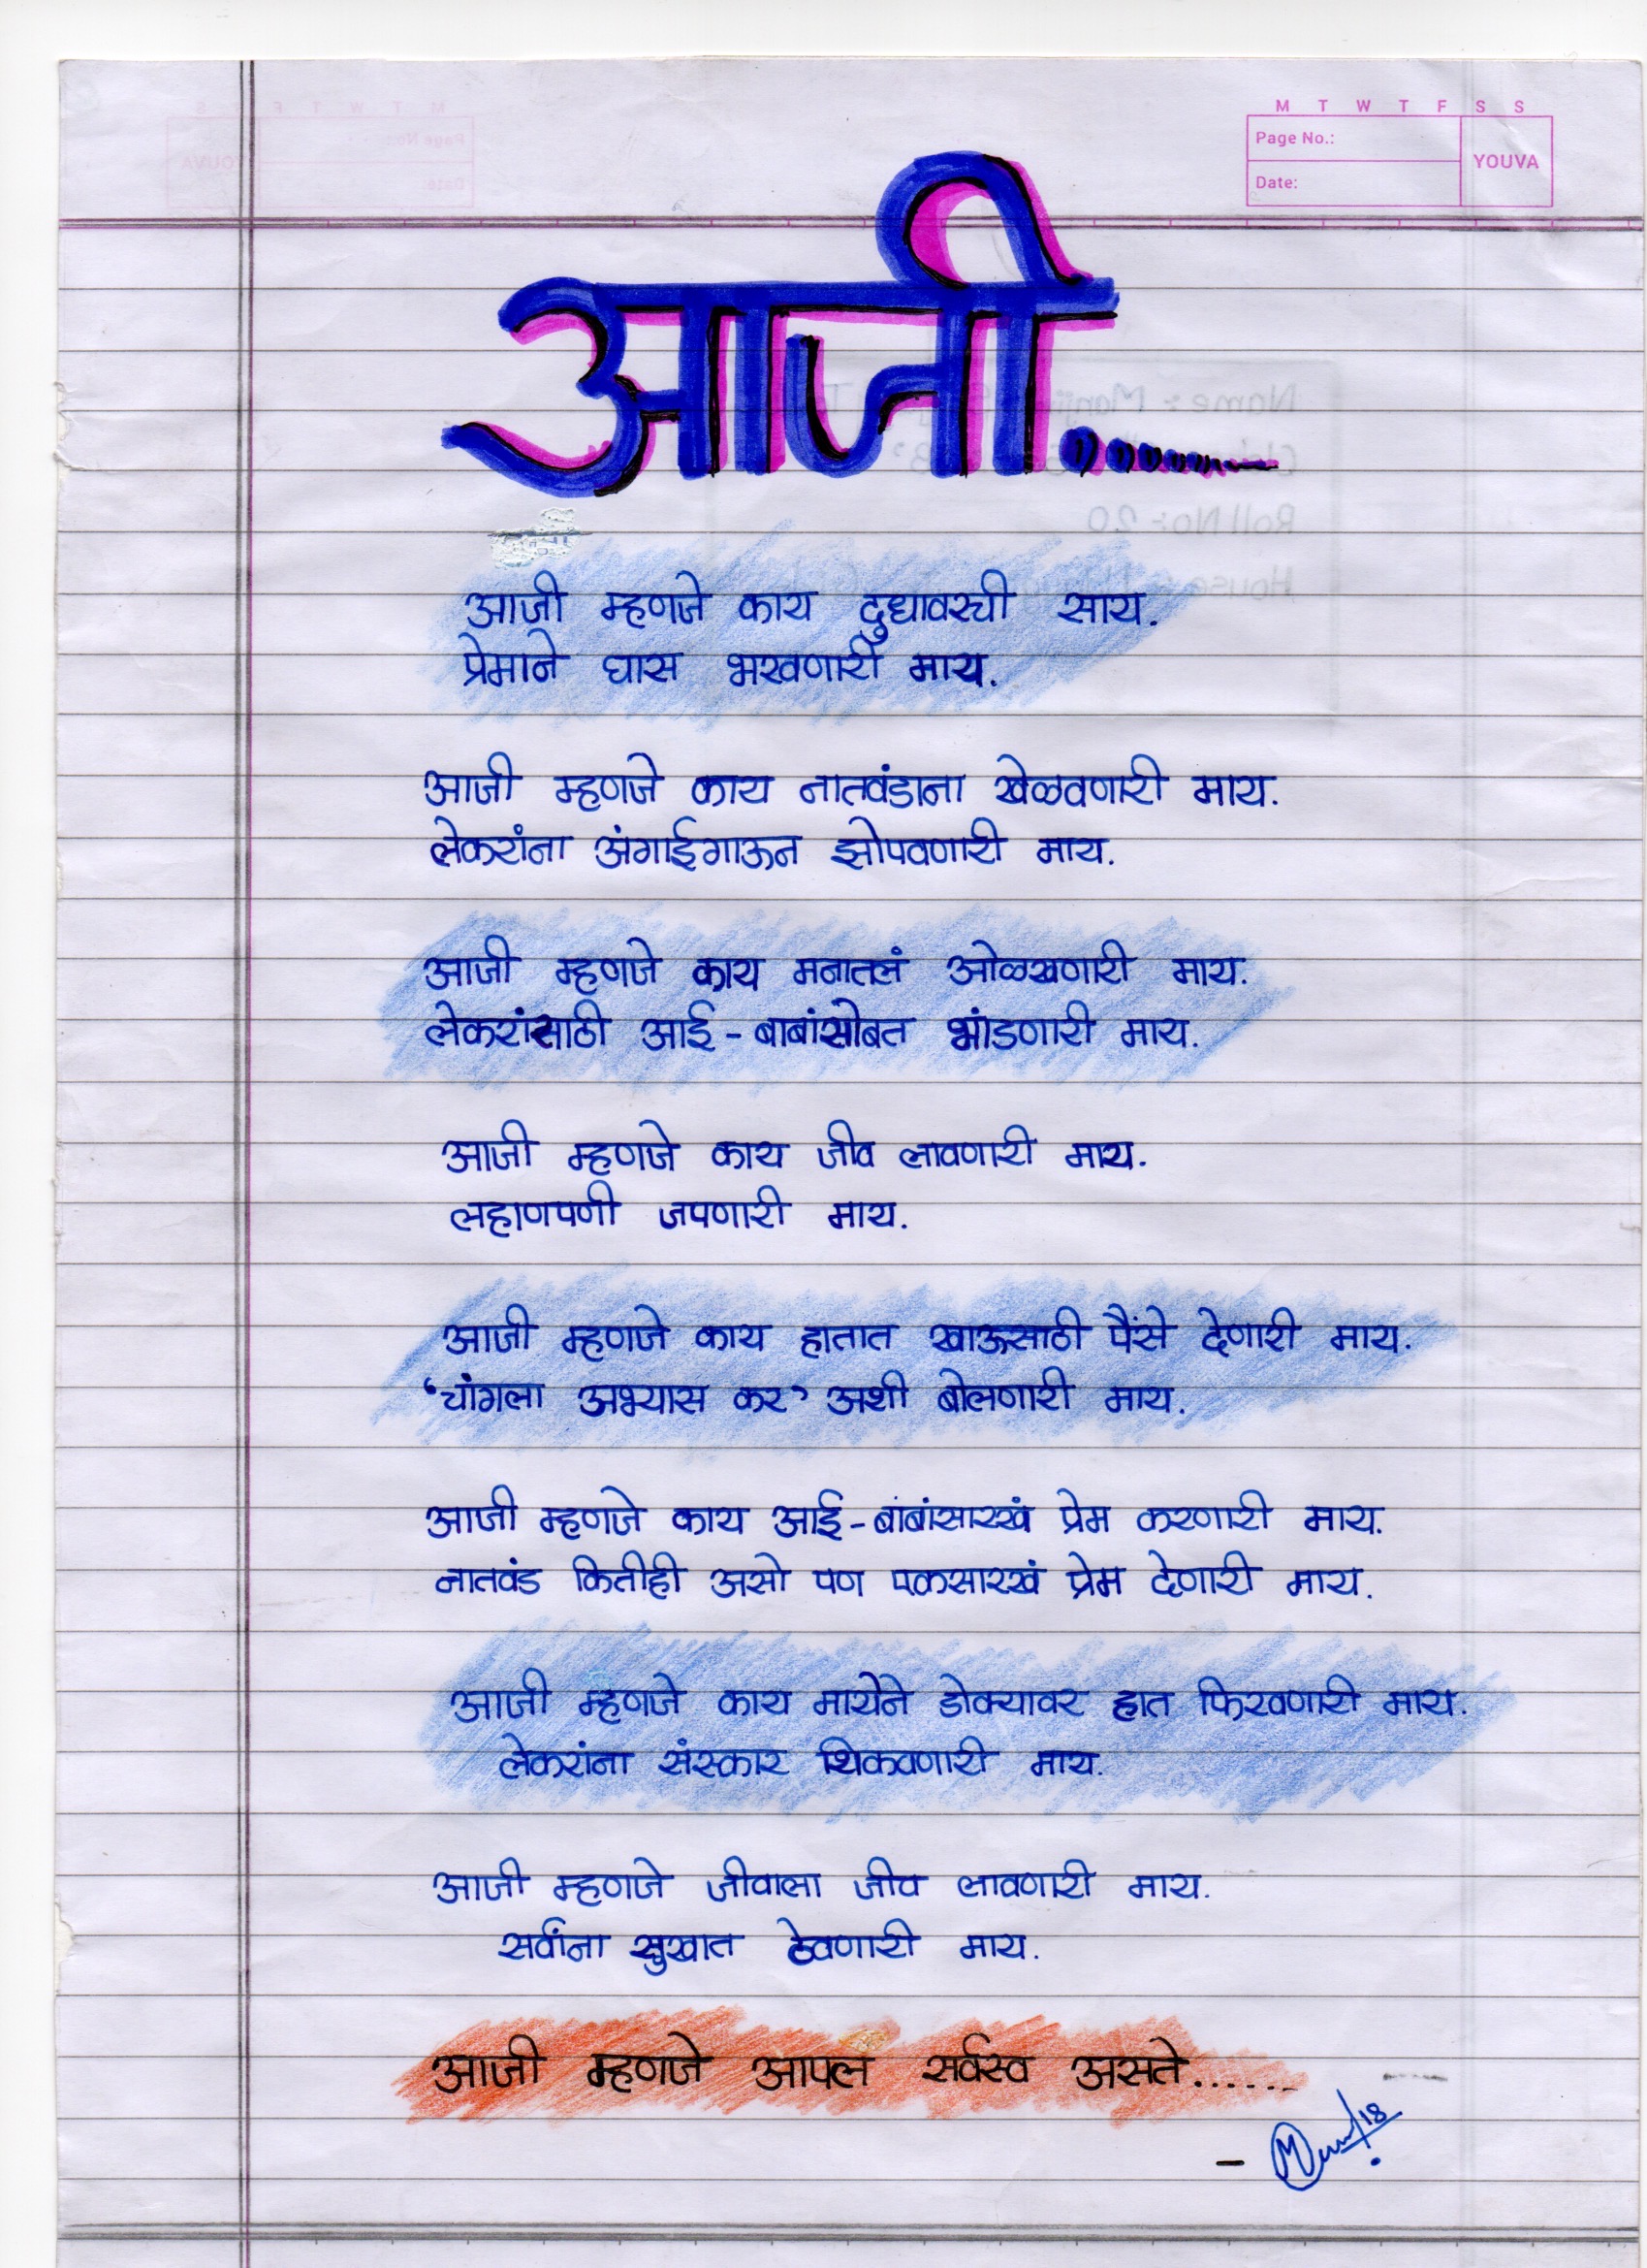 M T W T F S S
Page No.:
YOUVA
Date:
आजी.........
आजी म्हणजे काय दुधावरची साय.
प्रेमाने घास भरवणारी माय.
आजी म्हणजे काय नातवंडाना खेळवणारी माय.
लेकरांना अंगाईगाऊन झोपवणारी माय.
आजी म्हणजे काय मनातलं ओळखणारी माय.
लेकरांसाठी आई-बाबांसोबत भांडणारी माय.
आजी म्हणजे काय जीव लावणारी माय.
लहाणपणी जपणारी माय.
आजी म्हणजे काय हातात खाऊसाठी पैंसे देणारी माय.
‘चांगला अभ्यास कर’ अशी बोलणारी माय.
आजी म्हणजे काय आई-बांबांसारखं प्रेम करणारी माय.
नातवंड कितीही असो पण एकसारखं प्रेम देणारी माय.
आजी म्हणजे काय मायेने डोक्यावर हात फिरवणारी माय.
लेकरांना संस्कार शिकवणारी माय.
आजी म्हणजे जीवाला जीव लावणारी माय.
सर्वांना सुखात ठेवणारी माय.
आजी म्हणजे आपल सर्वस्व असते......